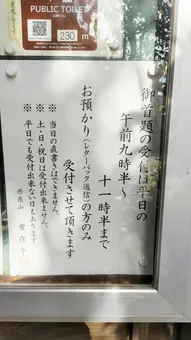 PUBLIC TOILET
230 m
御首題の受付は平日の
午前九時半～
十一時半まで
お預かり(レターパック返信)の方のみ
受付させて頂きます
※ 当日の直書きはできません。
※ 土・日・祝日は受付出来ません。
※ 平日でも受付出来ない日もあります。